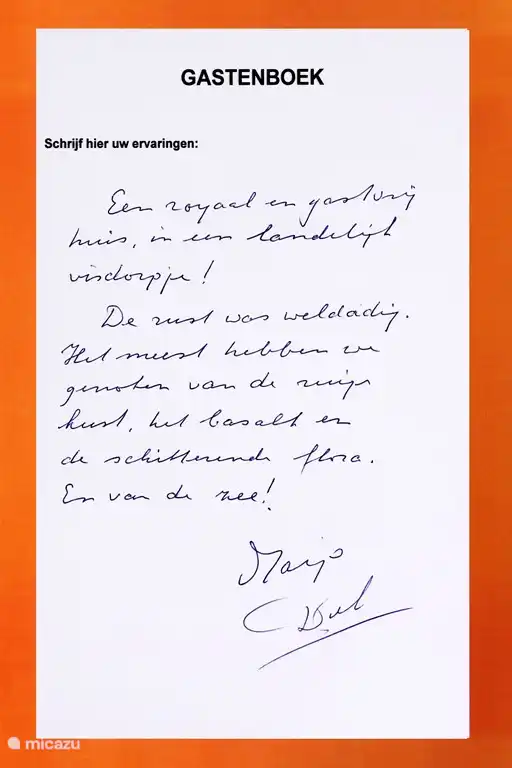 GASTENBOEK
Schrijf hier uw ervaringen:
Een royaal en gastvrij
huis, in een landelijk
visdorpje!
De rust was weldadig.
Het meest hebben we
genoten van de ruige
kust, het basalt en
de schitterende flora.
En van de zee!
Marjo
micazu